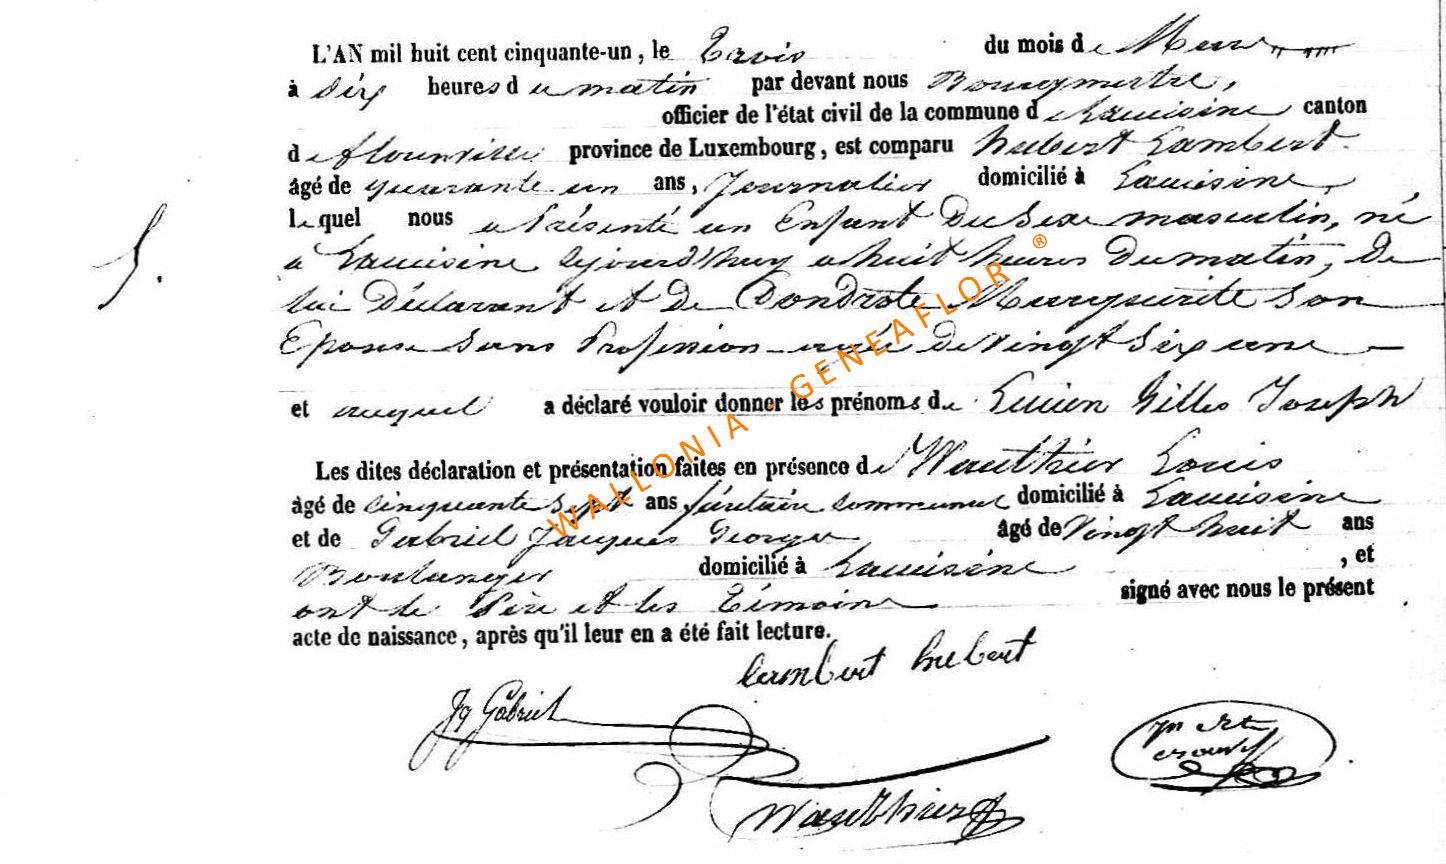 L'AN mil huit cent cinquante-un, le Trois du mois de Mars
à dix heures du matin par devant nous Bourgmestre,
officier de l'état civil de la commune de Lacuisine canton
de florenville province de Luxembourg, est comparu hubert Lambert
âgé de quarante un ans, Journalier domicilié à Lacuisine,
lequel nous a Présenté un Enfant Du Sexe masculin, né
5.
a Lacuisine aujourd'huy a huit heures Du matin, De
lui Déclarant et De Dondrote Marguerite Son
Epouse Sans Profession agée De Vingt Six ans
et auquel a déclaré vouloir donner les prénoms de Lucien Gilles Joseph
Les dites déclaration et présentation faites en présence de Wauthier Louis
âgé de cinquante Sept ans, Sécrétaire communal domicilié à Lacuisine
et de Gabriel Jacques George âgé de Vingt huit ans
Boulanger domicilié à Lacuisine, et
ont le Père et les Témoins signé avec nous le présent
acte de naissance, après qu'il leur en a été fait lecture.
Lambert hubert
Jq Gabriel
Wauthier
WALLONIA - GENEAFLOR ®